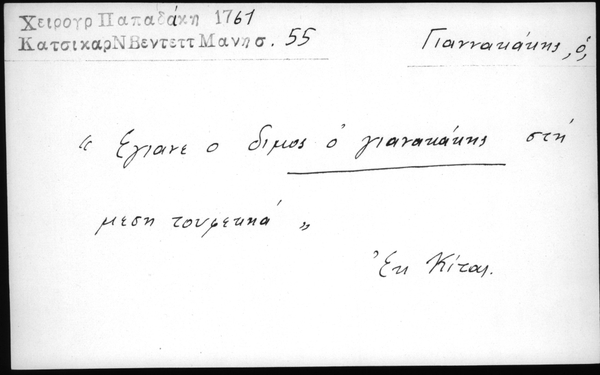 Χειρουρ Παπαδάκη 1761
ΚατσικαρΝΒεντεττΜανησ. 55
Γιαννακάκης, ὁ,
" εγιανε ο διμος ὁ γιανακάκης στή
μεση τουφεκιά "
Ἐκ Κίτας.